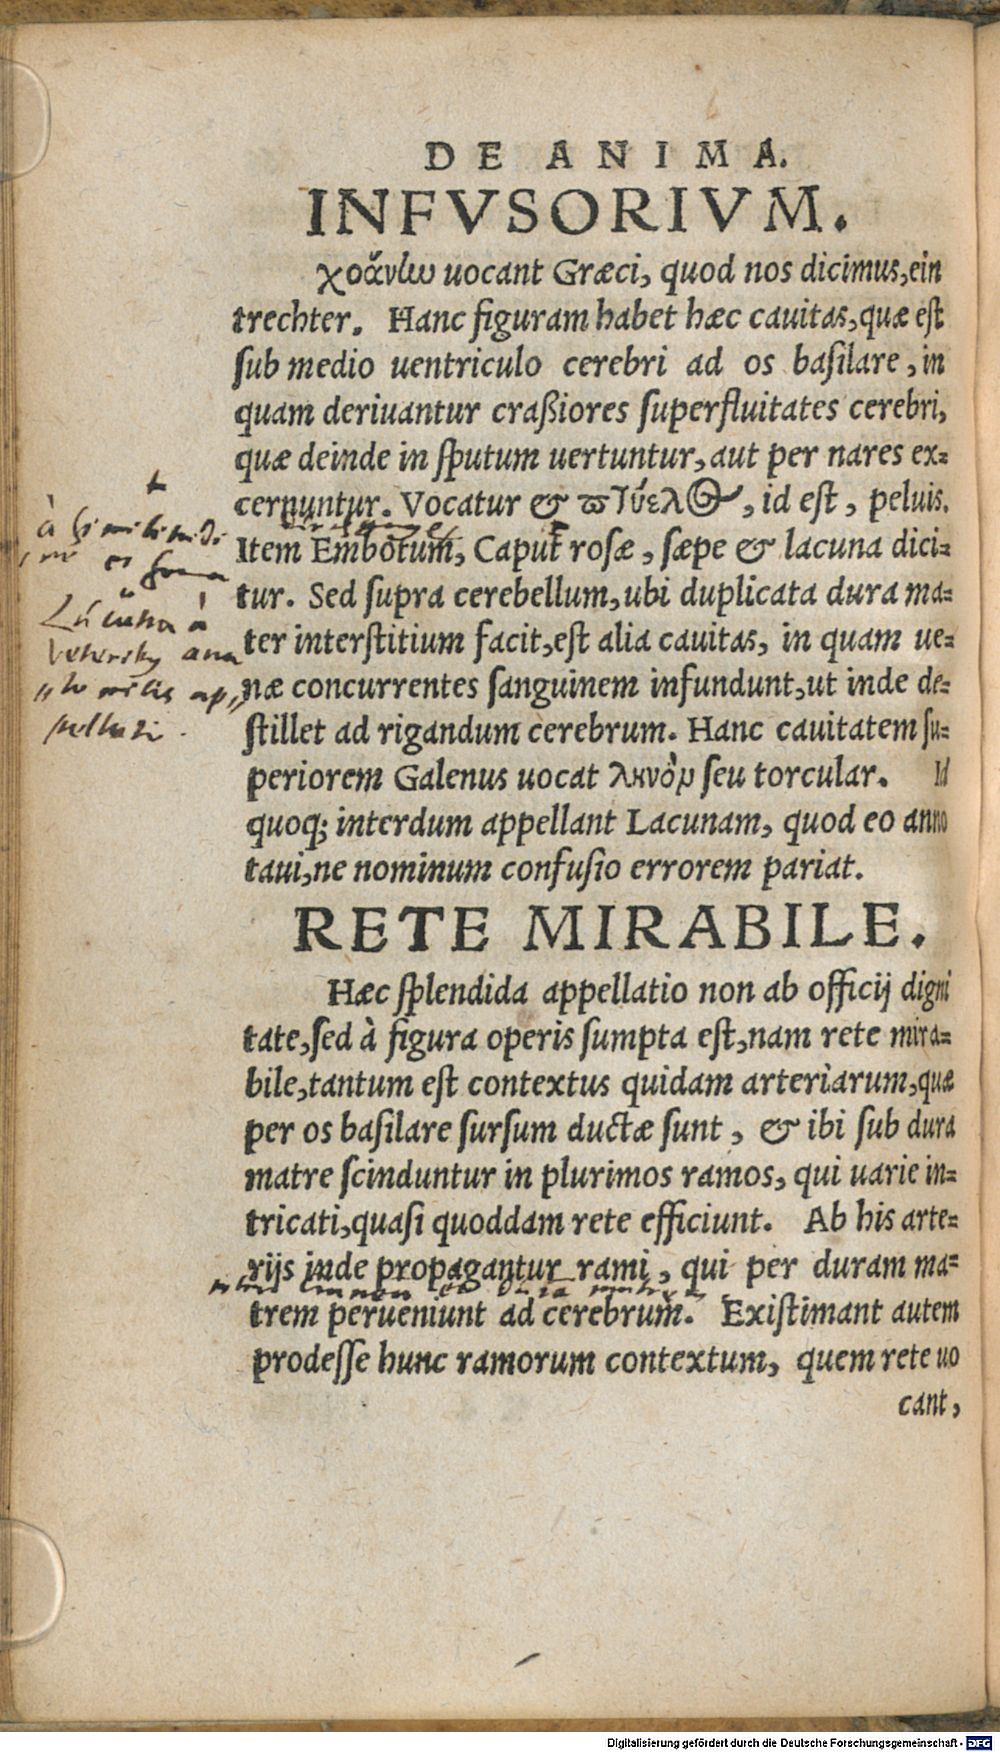 DE ANIMA.
INFVSORIVM.
χοάνlω uocant Græci, quod nos dicimus, ein
trechter. Hanc figuram habet hæc cauitas, quæ eſt
ſub medio uentriculo cerebri ad os baſilare, in
quam deriuantur craßiores ſuperfluitates cerebri,
quæ deinde in ſputum uertuntur, aut per nares ex=
cernuntur. Vocatur & πύελος, id eſt, peluis.
Item Embotum, Caput roſæ, ſæpe & lacuna dici=
tur. Sed ſupra cerebellum, ubi duplicata dura ma=
ter interſtitium facit, eſt alia cauitas, in quam ue=
næ concurrentes ſanguinem infundunt, ut inde de=
ſtillet ad rigandum cerebrum. Hanc cauitatem ſu=
periorem Galenus uocat ληνὸν ſeu torcular. Id
quoq; interdum appellant Lacunam, quod eo anno
taui, ne nominum confuſio errorem pariat.
à
Lacuna à
RETE MIRABILE.
Hæc ſplendida appellatio non ab officij digni
tate, ſed à figura operis ſumpta eſt, nam rete mira=
bile, tantum eſt contextus quidam arteriarum, quæ
per os baſilare ſurſum ductæ ſunt, & ibi ſub dura
matre ſcinduntur in plurimos ramos, qui uarie in=
tricati, quaſi quoddam rete efficiunt. Ab his arte=
rijs inde propagantur rami, qui per duram ma=
trem perueniunt ad cerebrum. Exiſtimant autem
prodeſſe hunc ramorum contextum, quem rete uo
cant,
Digitalisierung gefördert durch die Deutsche Forschungsgemeinschaft - DFG